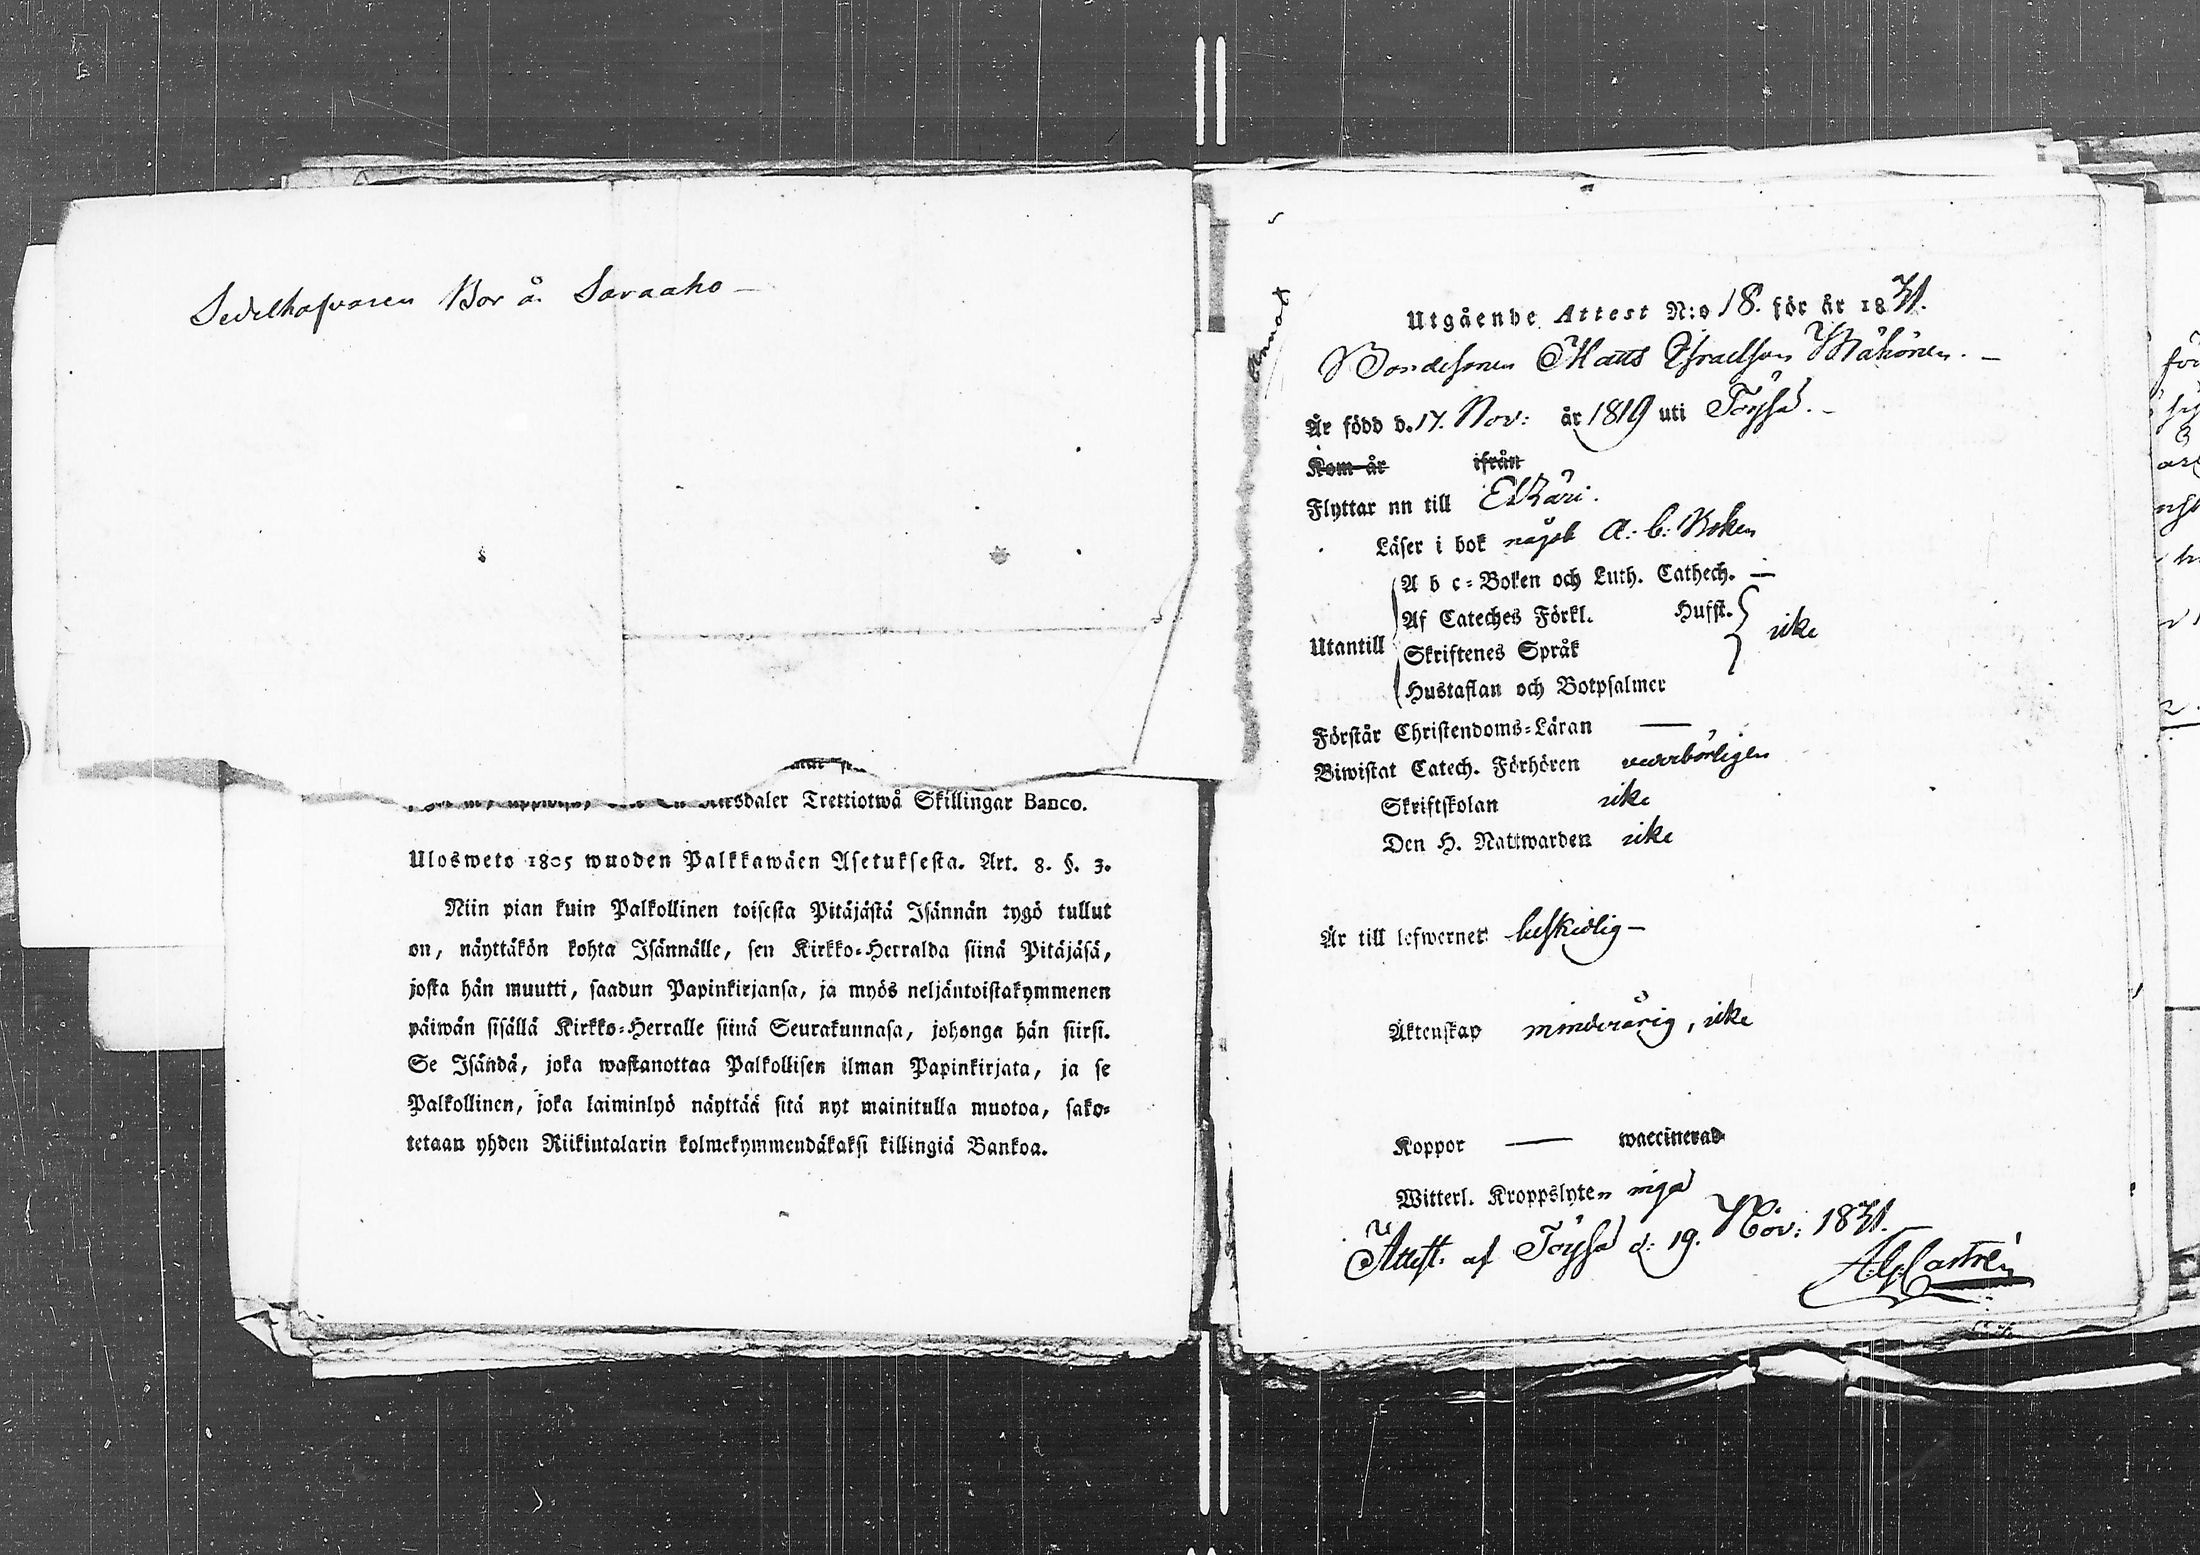 Sedelhafvaren Bor å Savaaho —
Riksdaler Trettiotwå Skillingar Banco.
Ulosweto 1805 wuoden Palkkawäen Asetuksesta. Art. 8. §. 3.
Niin pian kuin Palkollinen toisesta Pitäjästä Isännän tygö tullut
on, näyttäkön kohta Isännälle, sen Kirkko-Herralda siinä Pitäjäsä,
josta hän muutti, saadun Papinkirjansa, ja myös neljäntoistakymmenen
päiwän sisällä Kirkko-Herralle siinä Seurakunnasa, johonga hän siirsi.
Se Isändä, joka wastanottaa Palkollisen ilman Papinkirjata, ja se
Palkollinen, joka laiminlyö näyttää sitä nyt mainitulla muotoa, sako-
tetaan yhden Riikintalarin kolmekymmendäkaksi killingiä Bankoa.
Utgående Attest N:o 18. för år 1831.
Bondesonen Matts Israelsson Mähönen. —
Är född d. 17. Nov: år 1819 uti Töysä. —
Kom år ifrån
Flyttar nn till Etzäri.
Läser i bok något A: b: Boken
A b c-Boken och Luth. Cathech. —
Af Cateches Förkl. Hufst.
icke
Utantill
Skriftenes Språk
Hustaflan och Botpsalmer
Förstår Christendoms-Läran —
Biwistat Catech. Förhören vederbörligen
Skriftskolan icke
Den H. Nattwarden icke
Är till lefwernet beskedlig —
Äktenskap minderårig, icke
Koppor — waccinerad
Witterl. Kroppslyten inga
Attest. af Töysä d: 19. Nov: 1831.
A.G. Castrén